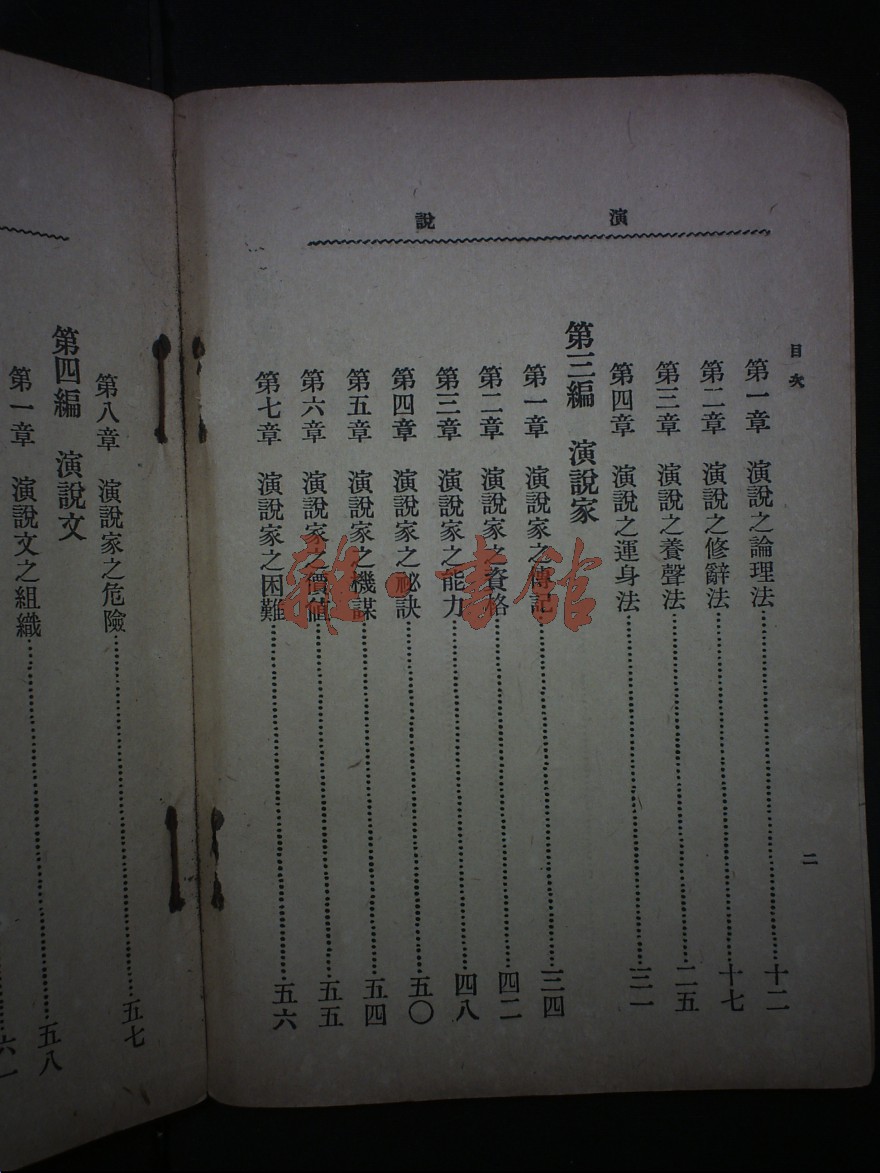 演說
目次
二
第一章 演說之論理法……十二
第二章 演說之修辭法……十七
第三章 演說之養聲法……二五
第四章 演說之運身法……三一
第三編 演說家
第一章 演說家之傳記……三四
第二章 演說家之資格……四二
第三章 演說家之能力……四八
第四章 演說家之祕訣……五〇
第五章 演說家之機謀……五四
第六章 演說家之價值……五五
第七章 演說家之困難……五六
第八章 演說家之危險……五七
第四編 演說文
第一章 演說文之組織……五八
六一
雜·書館